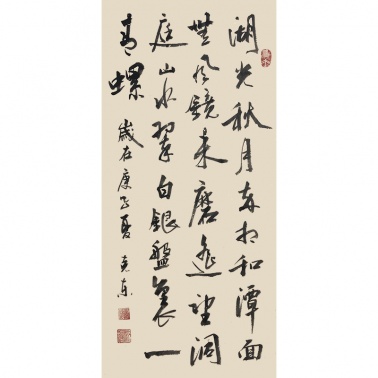 湖光秋月两相和潭面
無风鏡未磨遥望洞
庭山水翠白銀盤裏一
青螺 歲在庚子夏 克东